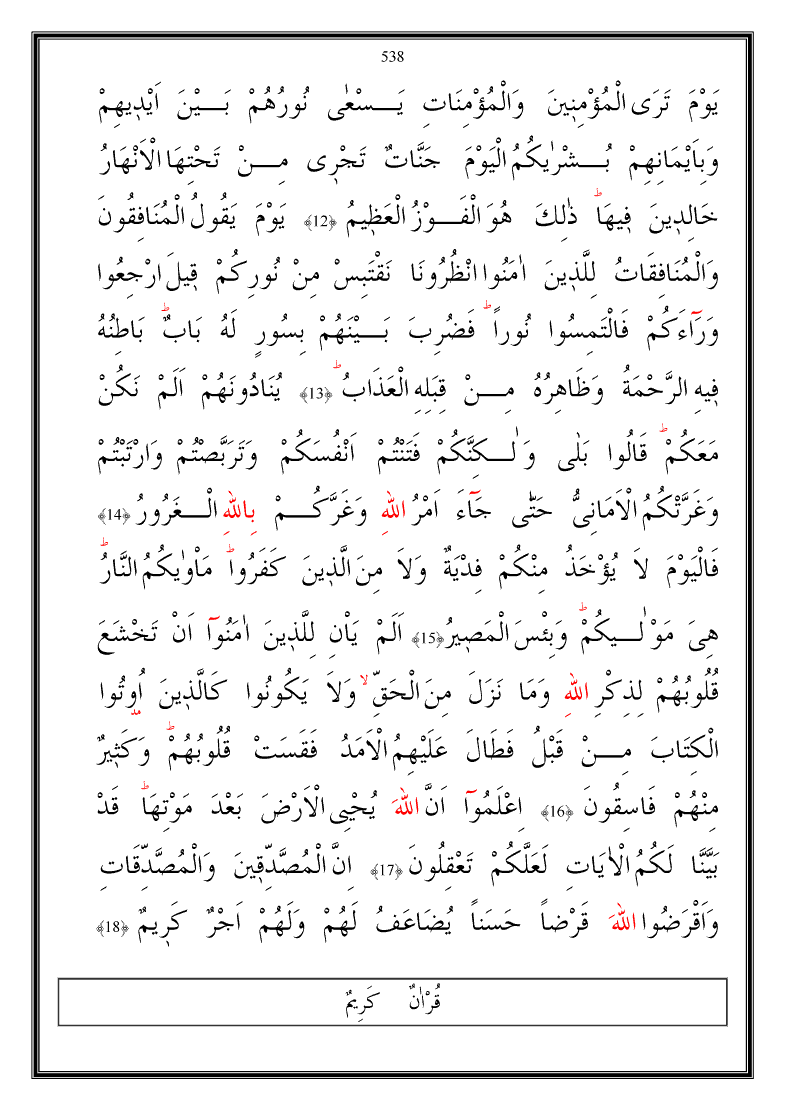 538
يَوْمَ تَرَى الْمُؤْمِنِينَ وَالْمُؤْمِنَاتِ يَسْعٰى نُورُهُمْ بَيْنَ اَيْدِيهِمْ
وَبِاَيْمَانِهِمْ بُشْرٰيكُمُ الْيَوْمَ جَنَّاتٌ تَجْرِى مِنْ تَحْتِهَا الْاَنْهَارُ
خَالِدِينَ فِيهَاۜ ذٰلِكَ هُوَ الْفَوْزُ الْعَظِيمُ ﴿12﴾ يَوْمَ يَقُولُ الْمُنَافِقُونَ
وَالْمُنَافِقَاتُ لِلَّذِينَ اٰمَنُوا انْظُرُونَا نَقْتَبِسْ مِنْ نُورِكُمْ قِيلَ ارْجِعُوا
وَرَٓاءَكُمْ فَالْتَمِسُوا نُوراًۜ فَضُرِبَ بَيْنَهُمْ بِسُورٍ لَهُ بَابٌۜ بَاطِنُهُ
فِيهِ الرَّحْمَةُ وَظَاهِرُهُ مِنْ قِبَلِهِ الْعَذَابُۜ ﴿13﴾ يُنَادُونَهُمْ اَلَمْ نَكُنْ
مَعَكُمْۜ قَالُوا بَلٰى وَلٰكِنَّكُمْ فَتَنْتُمْ اَنْفُسَكُمْ وَتَرَبَّصْتُمْ وَارْتَبْتُمْ
وَغَرَّتْكُمُ الْاَمَانِىُّ حَتّٰى جَٓاءَ اَمْرُ اللهِ وَغَرَّكُمْ بِاللهِ الْغَرُورُ ﴿14﴾
فَالْيَوْمَ لاَ يُؤْخَذُ مِنْكُمْ فِدْيَةٌ وَلاَ مِنَ الَّذِينَ كَفَرُواۜ مَاْوٰيكُمُ النَّارُۜ
هِىَ مَوْلٰيكُمْۜ وَبِئْسَ الْمَصِيرُ ﴿15﴾ اَلَمْ يَاْنِ لِلَّذِينَ اٰمَنُٓوا اَنْ تَخْشَعَ
قُلُوبُهُمْ لِذِكْرِ اللهِ وَمَا نَزَلَ مِنَ الْحَقِّۙ وَلاَ يَكُونُوا كَالَّذِينَ اُوتُوا
الْكِتَابَ مِنْ قَبْلُ فَطَالَ عَلَيْهِمُ الْاَمَدُ فَقَسَتْ قُلُوبُهُمْۜ وَكَثِيرٌ
مِنْهُمْ فَاسِقُونَ ﴿16﴾ اِعْلَمُٓوا اَنَّ اللهَ يُحْيِى الْاَرْضَ بَعْدَ مَوْتِهَاۜ قَدْ
بَيَّنَّا لَكُمُ الْاٰيَاتِ لَعَلَّكُمْ تَعْقِلُونَ ﴿17﴾ اِنَّ الْمُصَّدِّقِينَ وَالْمُصَّدِّقَاتِ
وَاَقْرَضُوا اللهَ قَرْضاً حَسَناً يُضَاعَفُ لَهُمْ وَلَهُمْ اَجْرٌ كَرِيمٌ ﴿18﴾
قُرْاٰنٌ كَرِيمٌ